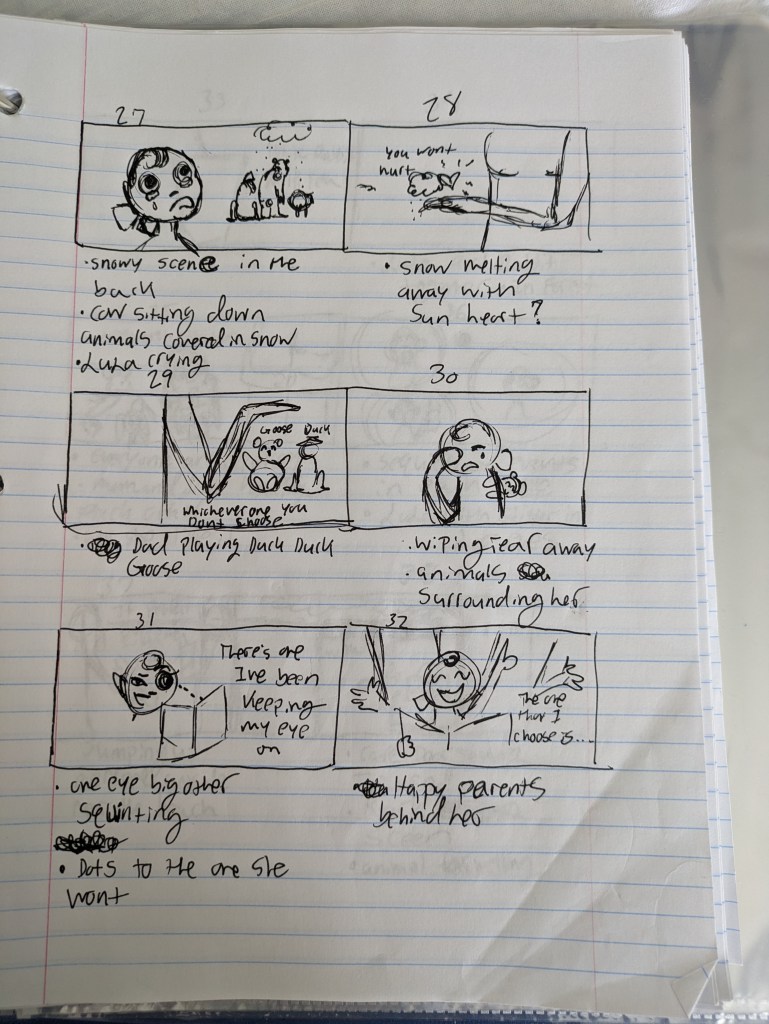 27
28
you wont
hurt
• snowy scene in the
back
• cow sitting down
animals covered in snow
• Luza crying
• snow melting
away with
Sun heart?
29
30
Goose Duck
whichever one you
Dont choose
• Dad playing Duck Duck
Goose
• wiping tear away
• animals
Surrounding her
31
32
There's one
I've been
keeping
my eye
on
The one
that I
choose is....
• one eye big other
squinting
• Dots to the one she
want
Happy parents
behind her